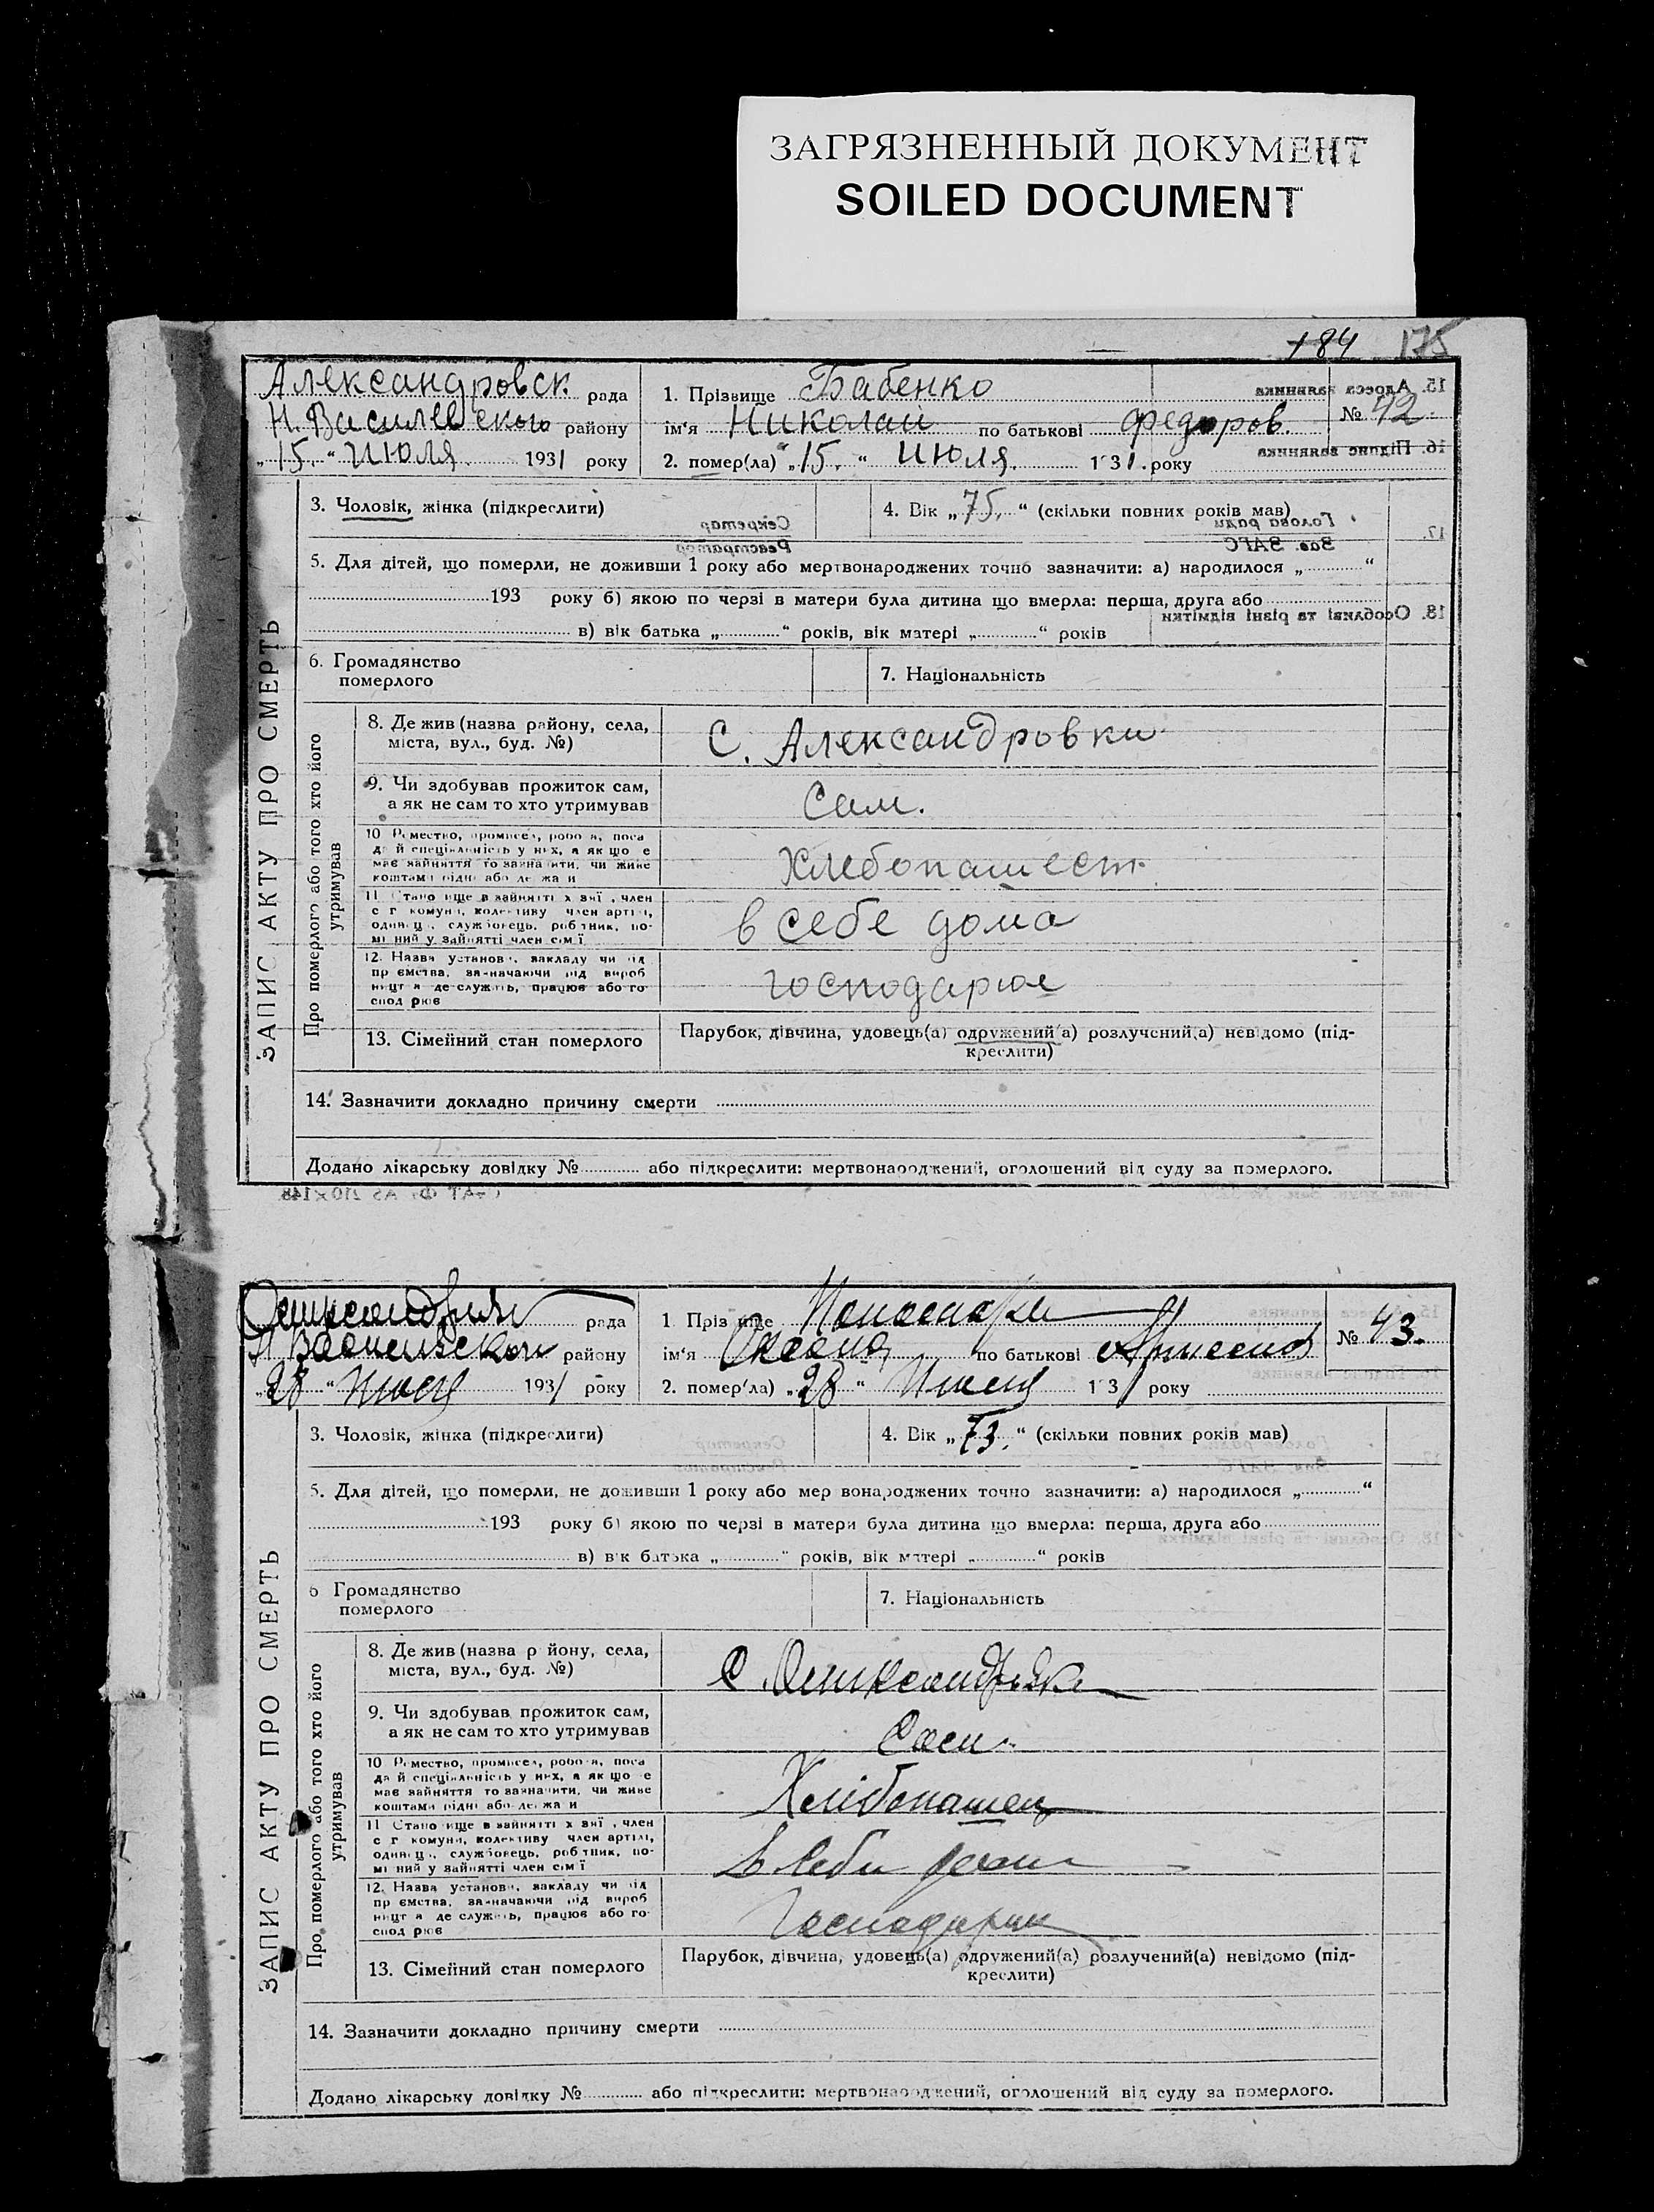 ЗАГРЯЗНЕННЫЙ ДОКУМЕНТ
SOILED DOCUMENT
184 175
Александровск. рада
Н. Василевского району
„15.“ июля. 1931 року
1. Прізвище Бабенко
ім‘я Николай по батькові Федоров.
№ 42
2. помер(ла) „15.“ июля. 1931. року
ЗАПИС АКТУ ПРО СМЕРТЬ
3. Чоловік, жінка (підкреслити)
4. Вік „75.“ (скільки повних років мав)
5. Для дітей, що померли, не доживши 1 року або мертвонароджених точно зазначити: а) народилося „ “
193 року б) якою по черзі в матери була дитина що вмерла: перша, друга або
в) вік батька „ “ років, вік матері „ “ років
6. Громадянство
померлого
7. Національність
Про померлого або того хто його
утримував
8. Де жив (назва району, села,
міста, вул., буд. №)
С. Александровки
9. Чи здобував прожиток сам,
а як не сам то хто утримував
Сам.
10 Ремество, промисел, робо а, поса
да й спеціальність у них, а якщо е
має зайняття то зазначити, чи живе
коштами рідні або держа и
Хлебопашест.
11 Становище в зайнятті х зяї , член
с г комуни, колективу член артілі,
одинец , службовець, роб тник, по-
мі ний у зайнятті член сім‘ї
в себе дома
12. Назва установи, закладу чи під
пр ємства, зазначаючи від вироб
ницт а де служить, працює або го-
спод рює
господарюе
13. Сімейний стан померлого
Парубок, дівчина, удовець(а) одружений(а) розлучений(а) невідомо (під-
креслити)
14. Зазначити докладно причину смерти
Додано лікарську довідку № або підкреслити: мертвонароджений, оголошений від суду за померлого.
рада
району
„28“ июля 1931 року
1. Прізвище
ім‘я Оксана по батькові
№ 43.
2. помер(ла) „28“ Июля 1931 року
ЗАПИС АКТУ ПРО СМЕРТЬ
3. Чоловік, жінка (підкреслити)
4. Вік „73.“ (скільки повних років мав)
5. Для дітей, що померли, не доживши 1 року або мер вонароджених точно зазначити: а) народилося „ “
193 року б) якою по черзі в матери була дитина що вмерла: перша, друга або
в) вік батька „ “ років, вік матері „ “ років
6 Громадянство
померлого
7. Національність
Про померлого або того хто його
утримував
8. Де жив (назва р йону, села,
міста, вул., буд. №)
С. Олександрівка
9. Чи здобував прожиток сам,
а як не сам то хто утримував
Сам
10 Ремество, промисел, робо а, поса
да й спеціальність у них, а якщо е
має зайняття то зазначити, чи живе
коштами рідні або держа и
Хлібопашец
11 Становище в зайнятті х зяї , член
с г комуни, колективу член артілі,
одинец , службовець, роб тник, по-
мі ний у зайнятті член сім‘ї
в себи дома
12. Назва установи, закладу чи під
пр ємства, зазначаючи від вироб
ницт а де служить, працює або го-
спод рює
13. Сімейний стан померлого
Парубок, дівчина, удовець(а) одружений(а) розлучений(а) невідомо (під-
креслити)
14. Зазначити докладно причину смерти
Додано лікарську довідку № або підкреслити: мертвонароджений, оголошений від суду за померлого.